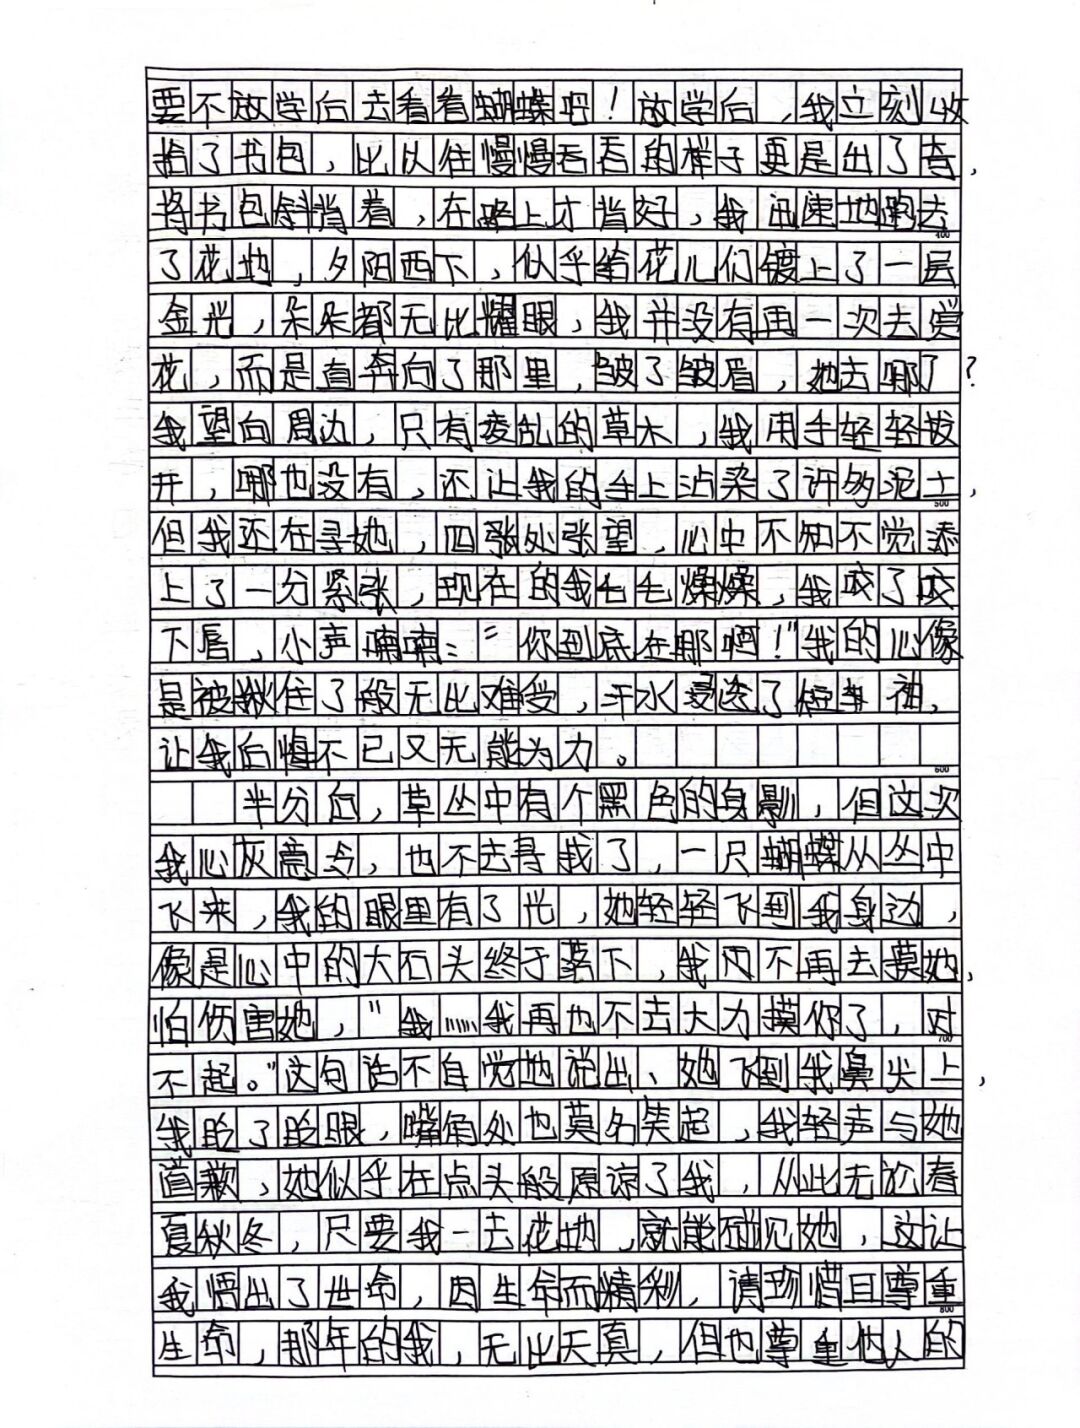 要不放学后去看看蝴蝶吧！放学后，我立刻收
拾了书包，比以往慢慢吞吞的样子更是出了奇，
将书包斜背着，在路上才背好，我迅速地跑去
了花地，夕阳西下，似乎给花儿们镀上了一层
金光，朵朵都无比耀眼，我并没有再一次去赏
花，而是直奔向了那里，皱了皱眉，她去哪了？
我望向周边，只有凌乱的草木，我用手轻轻拔
开，哪也没有，还让我的手上沾染了许多泥土，
但我还在寻她，四张处张望，心中不知不觉添
上了一分紧张，现在的我毛毛燥燥，我咬了咬
下唇，小声喃喃："你到底在哪啊！"我的心像
是被揪住了般无比难受，汗水浸透了短袖，
让我后悔不已又无能为力。
半分后，草丛中有个黑色的身影，但这次
我心灰意冷，也不去寻找了，一只蝴蝶从丛中
飞来，我的眼里有了光，她轻轻飞到我身边，
像是心中的大石头终于落下，我不再去摸她，
怕伤害她，"我……我再也不去大力摸你了，对
不起。"这句话不自觉地说出、她飞到我鼻尖上，
我眨了眨眼，嘴角处也莫名笑起，我轻声与她
道歉，她似乎在点头般原谅了我，从此无论春
夏秋冬，只要我一去花地，就能碰见她，这让
我悟出了世命，因生命而精彩，请珍惜且尊重
生命，那年的我，无比天真，但也尊重他人的